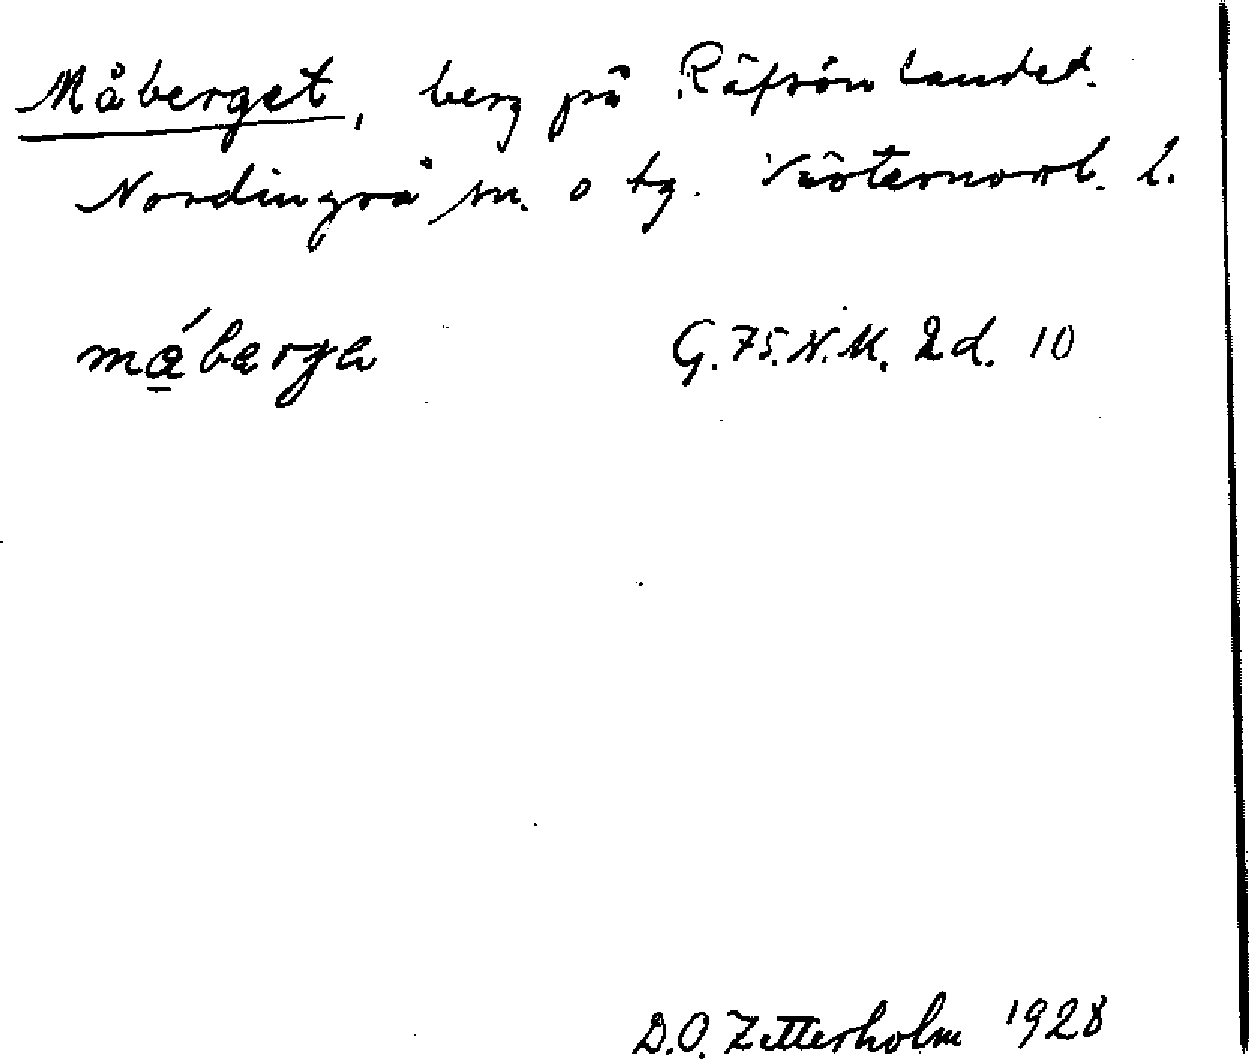 Måberget, berg på Räfsön landet.
Nordingrå sn. o tg. Västernorrl. l.
má̱berga G.75.N.M. 2d. 10
D.O. Zetterholm 1928